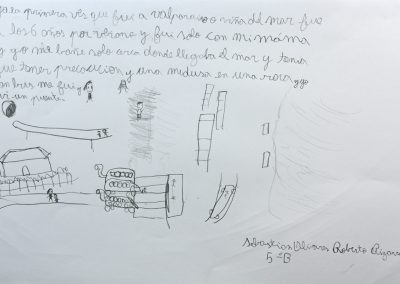 la primera vés que fui a valparaiso o viña del mar fue
a los 6 años por verano y fui solo con mi mama
y yo me bañe solo cerca donde llegaba el mar y tenia
que tener precaucion y una medusa en una roca y yo
me fui y
vi un puente.
Sebastian Olivares Roberto
5°B